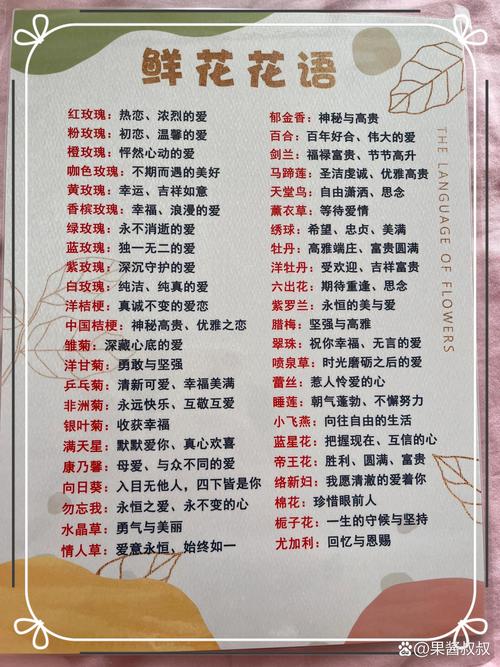 鲜花花语
红玫瑰：热恋、浓烈的爱
粉玫瑰：初恋、温馨的爱
橙玫瑰：怦然心动的爱
咖色玫瑰：不期而遇的美好
黄玫瑰：幸运、吉祥如意
香槟玫瑰：幸福、浪漫的爱
绿玫瑰：永不消逝的爱
蓝玫瑰：独一无二的爱
紫玫瑰：深沉守护的爱
白玫瑰：纯洁、纯真的爱
洋桔梗：真诚不变的爱恋
中国桔梗：神秘高贵、优雅之恋
雏菊：深藏心底的爱
洋甘菊：勇敢与坚强
乒乓菊：清新可爱、幸福美满
非洲菊：永远快乐、互敬互爱
银叶菊：收获幸福
满天星：默默爱你、真心欢喜
康乃馨：母爱、与众不同的爱
向日葵：入目无他人，四下皆是你
勿忘我：永恒之爱、永不变的心
水晶草：勇气与美丽
情人草：爱意永恒、始终如一
郁金香：神秘与高贵
百合：百年好合、伟大的爱
剑兰：福禄富贵、节节高升
马蹄莲：圣洁虔诚、优雅高贵
天堂鸟：自由潇洒、思念
薰衣草：等待爱情
绣球：希望、忠贞、美满
牡丹：高雅端庄、富贵圆满
洋牡丹：受欢迎、吉祥富贵
六出花：期待重逢、思念
紫罗兰：永恒的美与爱
腊梅：坚强与高雅
翠珠：祝你幸福、无言的爱
喷泉草：时光磨砺之后的爱
蕾丝：惹人怜爱的心
睡莲：朝气蓬勃、不懈努力
小飞燕：向往自由的生活
蓝星花：把握现在、互信的心
帝王花：胜利、圆满、富贵
络新妇：我愿清澈的爱着你
棉花：珍惜眼前人
栀子花：一生的守候与坚持
尤加利：回忆与恩赐
THE LANGUAGE OF FLOWERS
@果酱叔叔